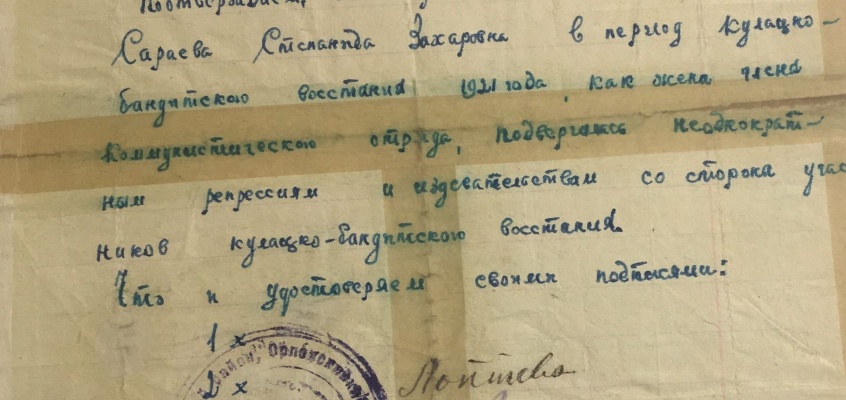 Сараева Степанида Захаровна в период кулацко-
бандитского восстания 1921 года, как жена члена
Коммунистического отряда, подвергалась неоднократ-
ным репрессиям и издевательствам со сторона учас
ников кулацко-бандитского восстания.
Что и удостоверяем своими подписями:
1 х
2 х